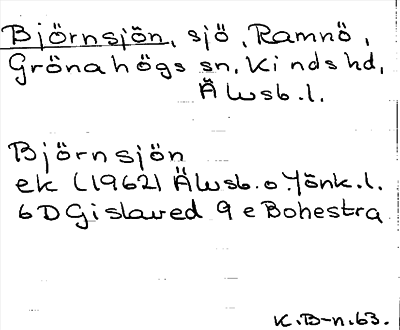 Björnsjön, sjö, Ramnö,
Grönahögs sn, Kinds hd,
Älvsb.l.
Björnsjön
ek (1962) Älvsb. o. Jönk. l.
6D Gislaved 9 e Bohestra
K.B-n.63.